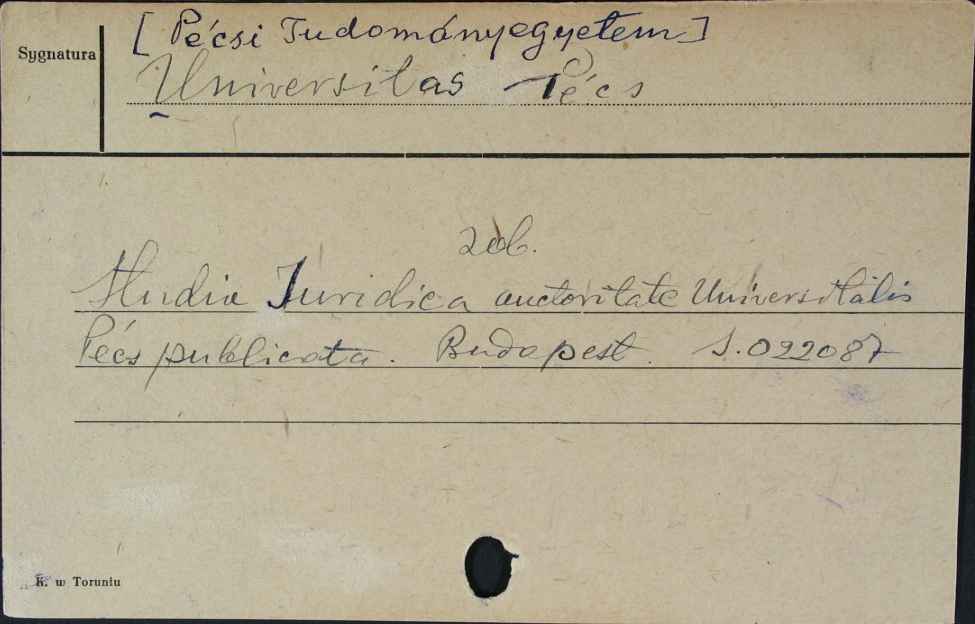 [Pécsi Tudományegyetem]
Sygnatura
Universitas Pécs
zob.
Studia Juridica auctoritate Universitatis
Pécs publicata. Budapest. S.022087
K. w Toruniu